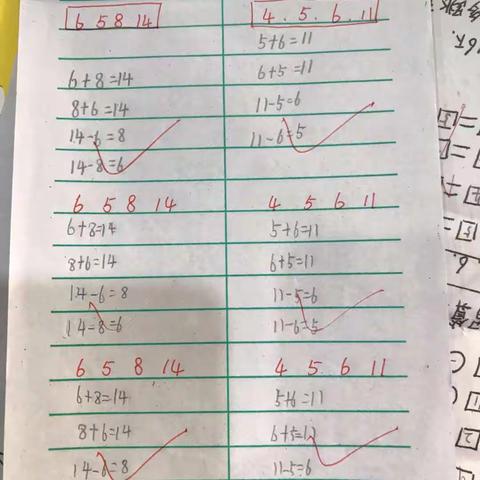 6 5 8 14
6+8=14
8+6=14
14-6=8
14-8=6
4 . 5 . 6 . 11
5+6=11
6+5=11
11-5=6
11-6=5
6 5 8 14
6+8=14
8+6=14
14-6=8
14-8=6
4 5 6 11
5+6=11
6+5=11
11-5=6
11-6=5
6 5 8 14
6+8=14
8+6=14
14-6=8
4 5 6 11
5+6=11
6+5=11
11-5=6